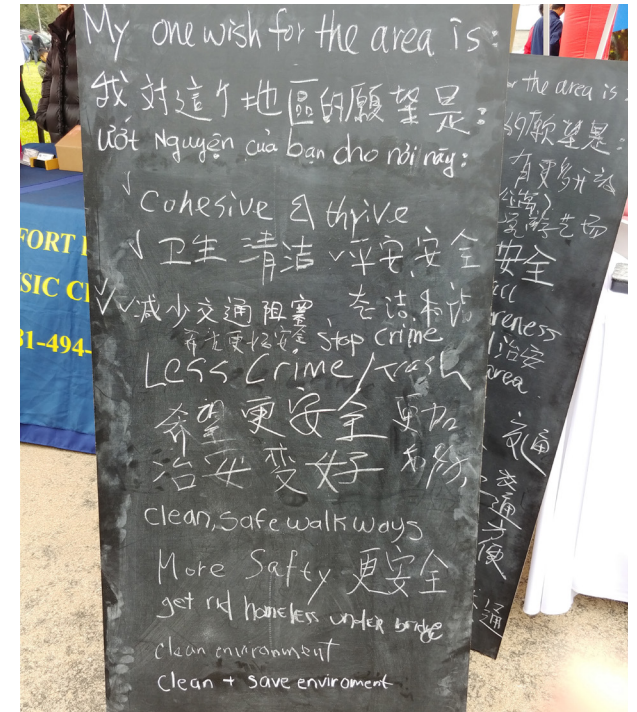 My one wish for the area is:
我对這个地區的願望是:
ước Nguyện của bạn cho nơi này:
✓ Cohesive & thrive
✓ 卫生 清洁 ✓平安,安全
✓✓减少交通阻塞 志洁
希望更好安全 stop crime
Less Crime/trash
希望更安全 更加
治安变好
clean, safe walkways
More Safty 更安全
get rid homeless under bridge
clean environment
clean + save enviroment
FORT
SIC
81-494-
the area is:
的願望是:
有更多
安全
reness
治安
area.
交通
交通方便
通